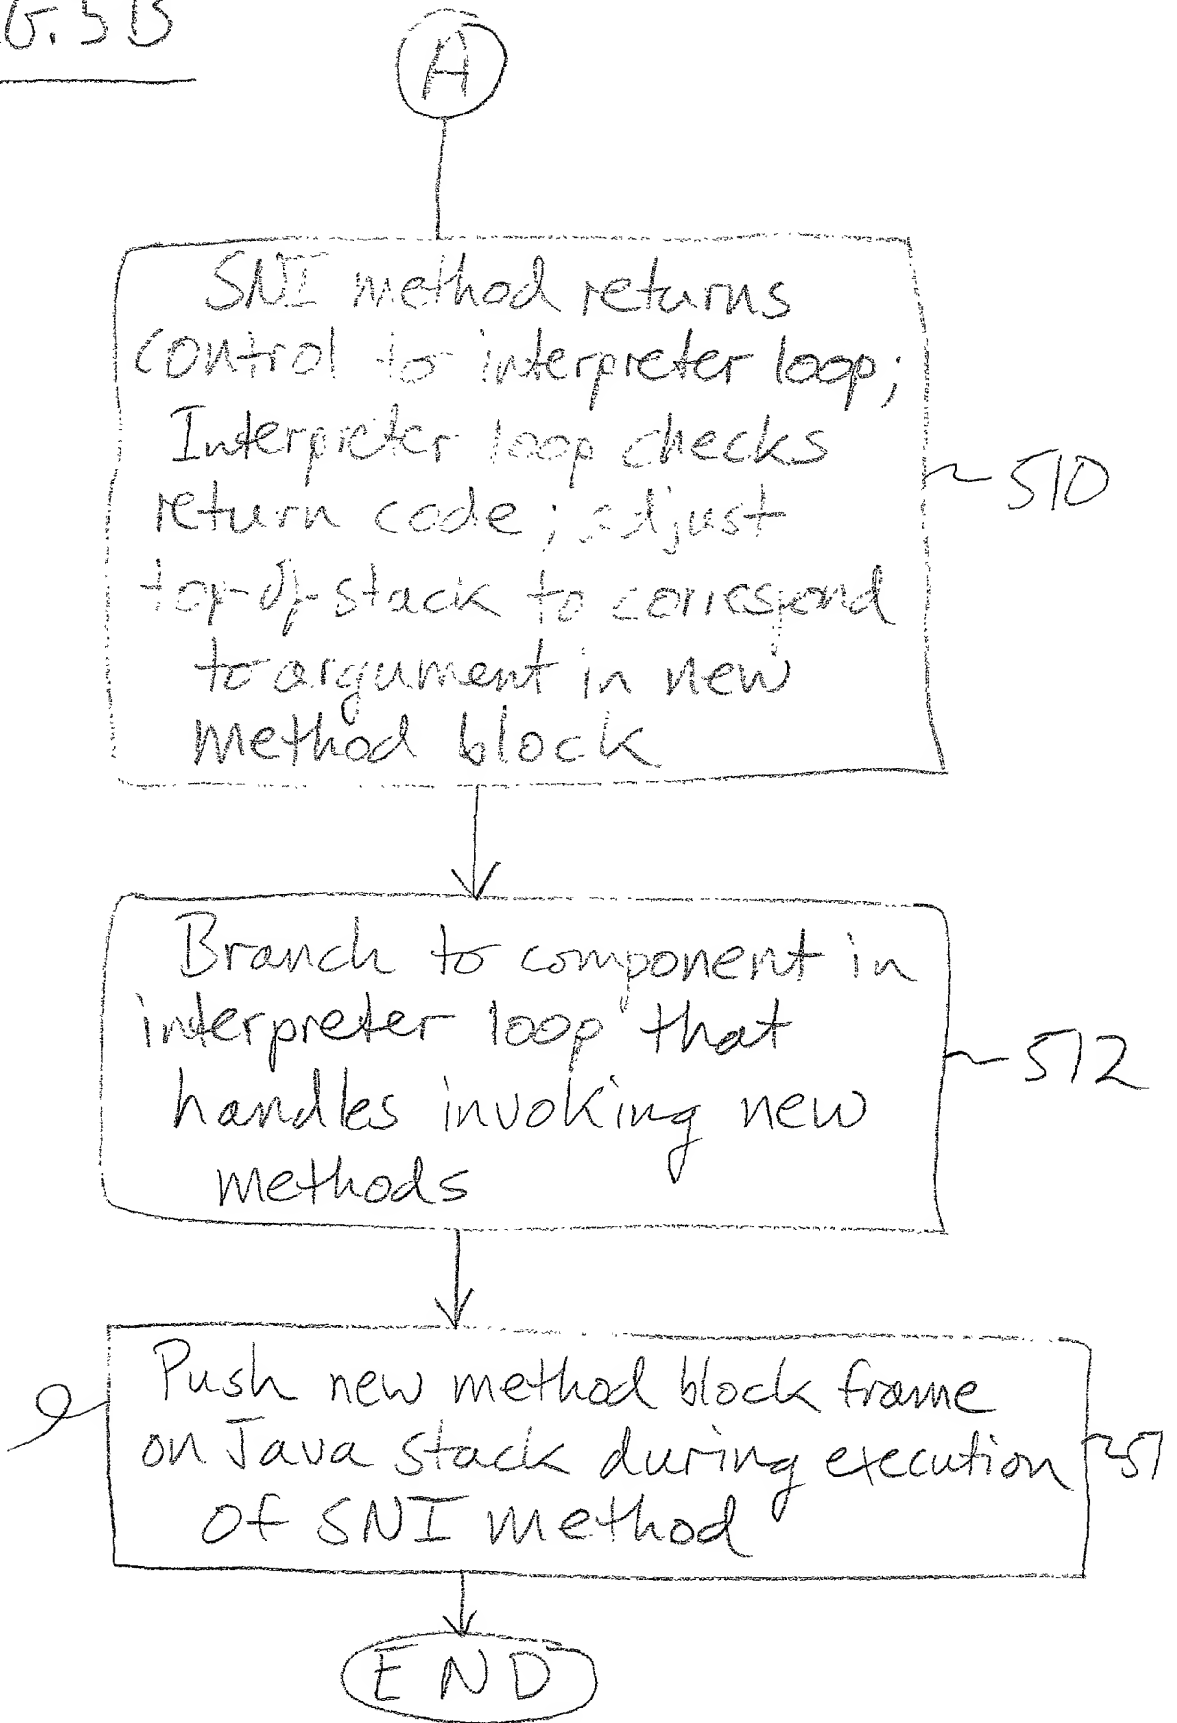 G. 5B
A
SNI method returns
control to interpreter loop;
Interpreter loop checks
return code; adjust
top-of-stack to correspond
to argument in new
method block
510
Branch to component in
interpreter loop that
handles invoking new
methods
512
Push new method block frame
on Java stack during execution
of SNI method
51
END